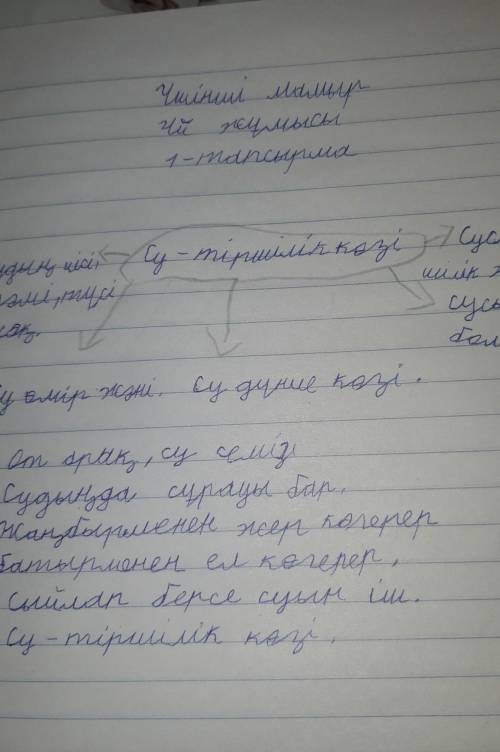 Үшінші мамыр
Үй жұмысы
1-тапсырма
Су - тіршілік көзі
иісі,
түсі
Сусы
бол
Су өмір жәні. Су дүние көзі.
От арық, су семіз
Судыңда сұрауы бар.
Жаңбырменен жер көгерер
батырменен ел көгерер,
Сыйлап берсе суын іш.
Су - тіршілік көзі.